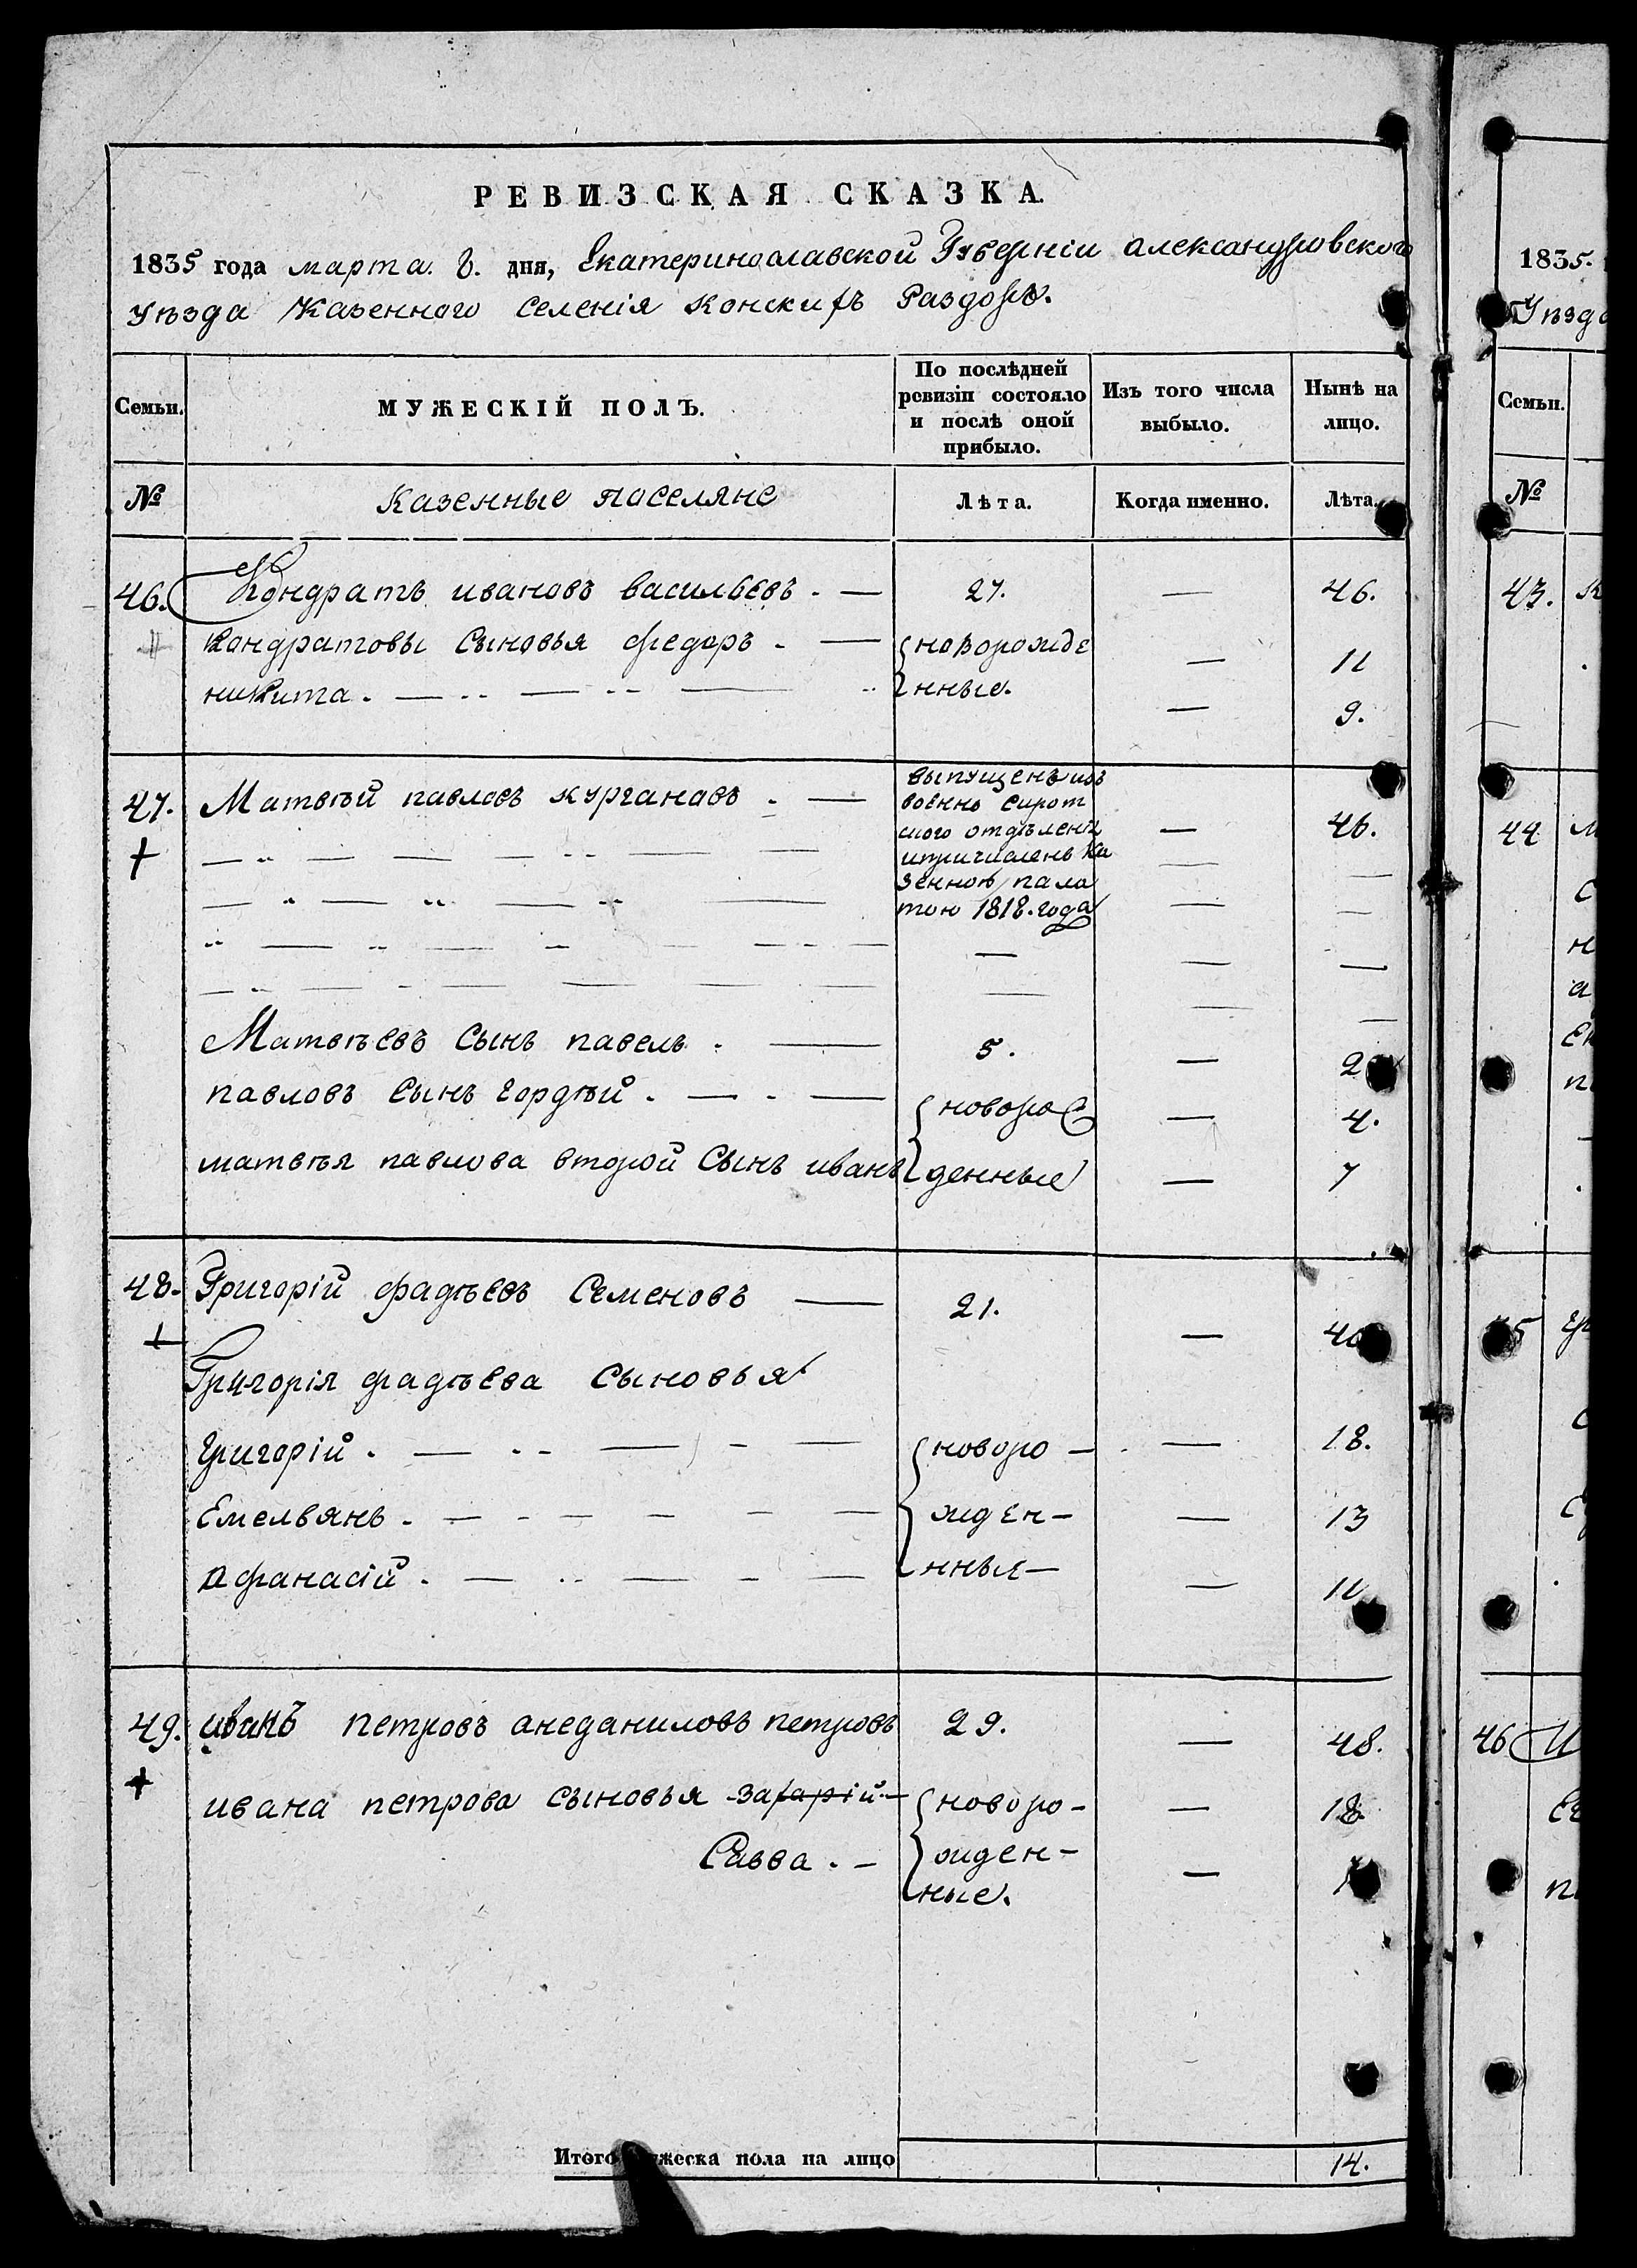 РЕВИЗСКАЯ СКАЗКА.
1835 года марта. 8. дня, Екатеринославской Губерніи александровского
Уѣзда Казенного Селенія Конскихъ Раздоръ.
Семьи.
МУЖЕСКІЙ ПОЛЪ.
По послѣдней ревизіи состояло и послѣ оной прибыло.
Изъ того числа выбыло.
Нынѣ на лицо.
№
Казенные поселяне
Лѣта.
Когда именно.
Лѣта.
46. Кондратъ ивановъ васильевъ. — 27. — 46.
Кондратовы Сыновья федоръ. — новорожде — 11
никита. — нные. — 9.
47. Матвѣй павловъ кургановъ. — — 46.
выпущенъ изъ
военно сирот
ского отдѣленія
ипричисленъ Ка
зенною пала
тою 1818. года
Матвѣевъ Сынъ павелъ. — 5. — 2
павловъ Сынъ Гордѣй. — новорож — 4.
матвѣя павлова второй Сынъ иванъ денные — 7
48. Григорій фадѣевъ Семеновъ — 21. — 40
Григорія фадѣева Сыновья
Григорій. — новоро — — 18.
Емельянъ. — жден — — 13
Афанасій. — нныя — — 11
49. иванъ петровъ анеданиловъ петровъ 29. — 48.
ивана петрова сыновья захарій — новоро — — 18.
Савва. — жден — —
ные.
Итого мужеска пола на лицо 14.
1835.
Уѣзд
Семьи.
№
43.
44
46